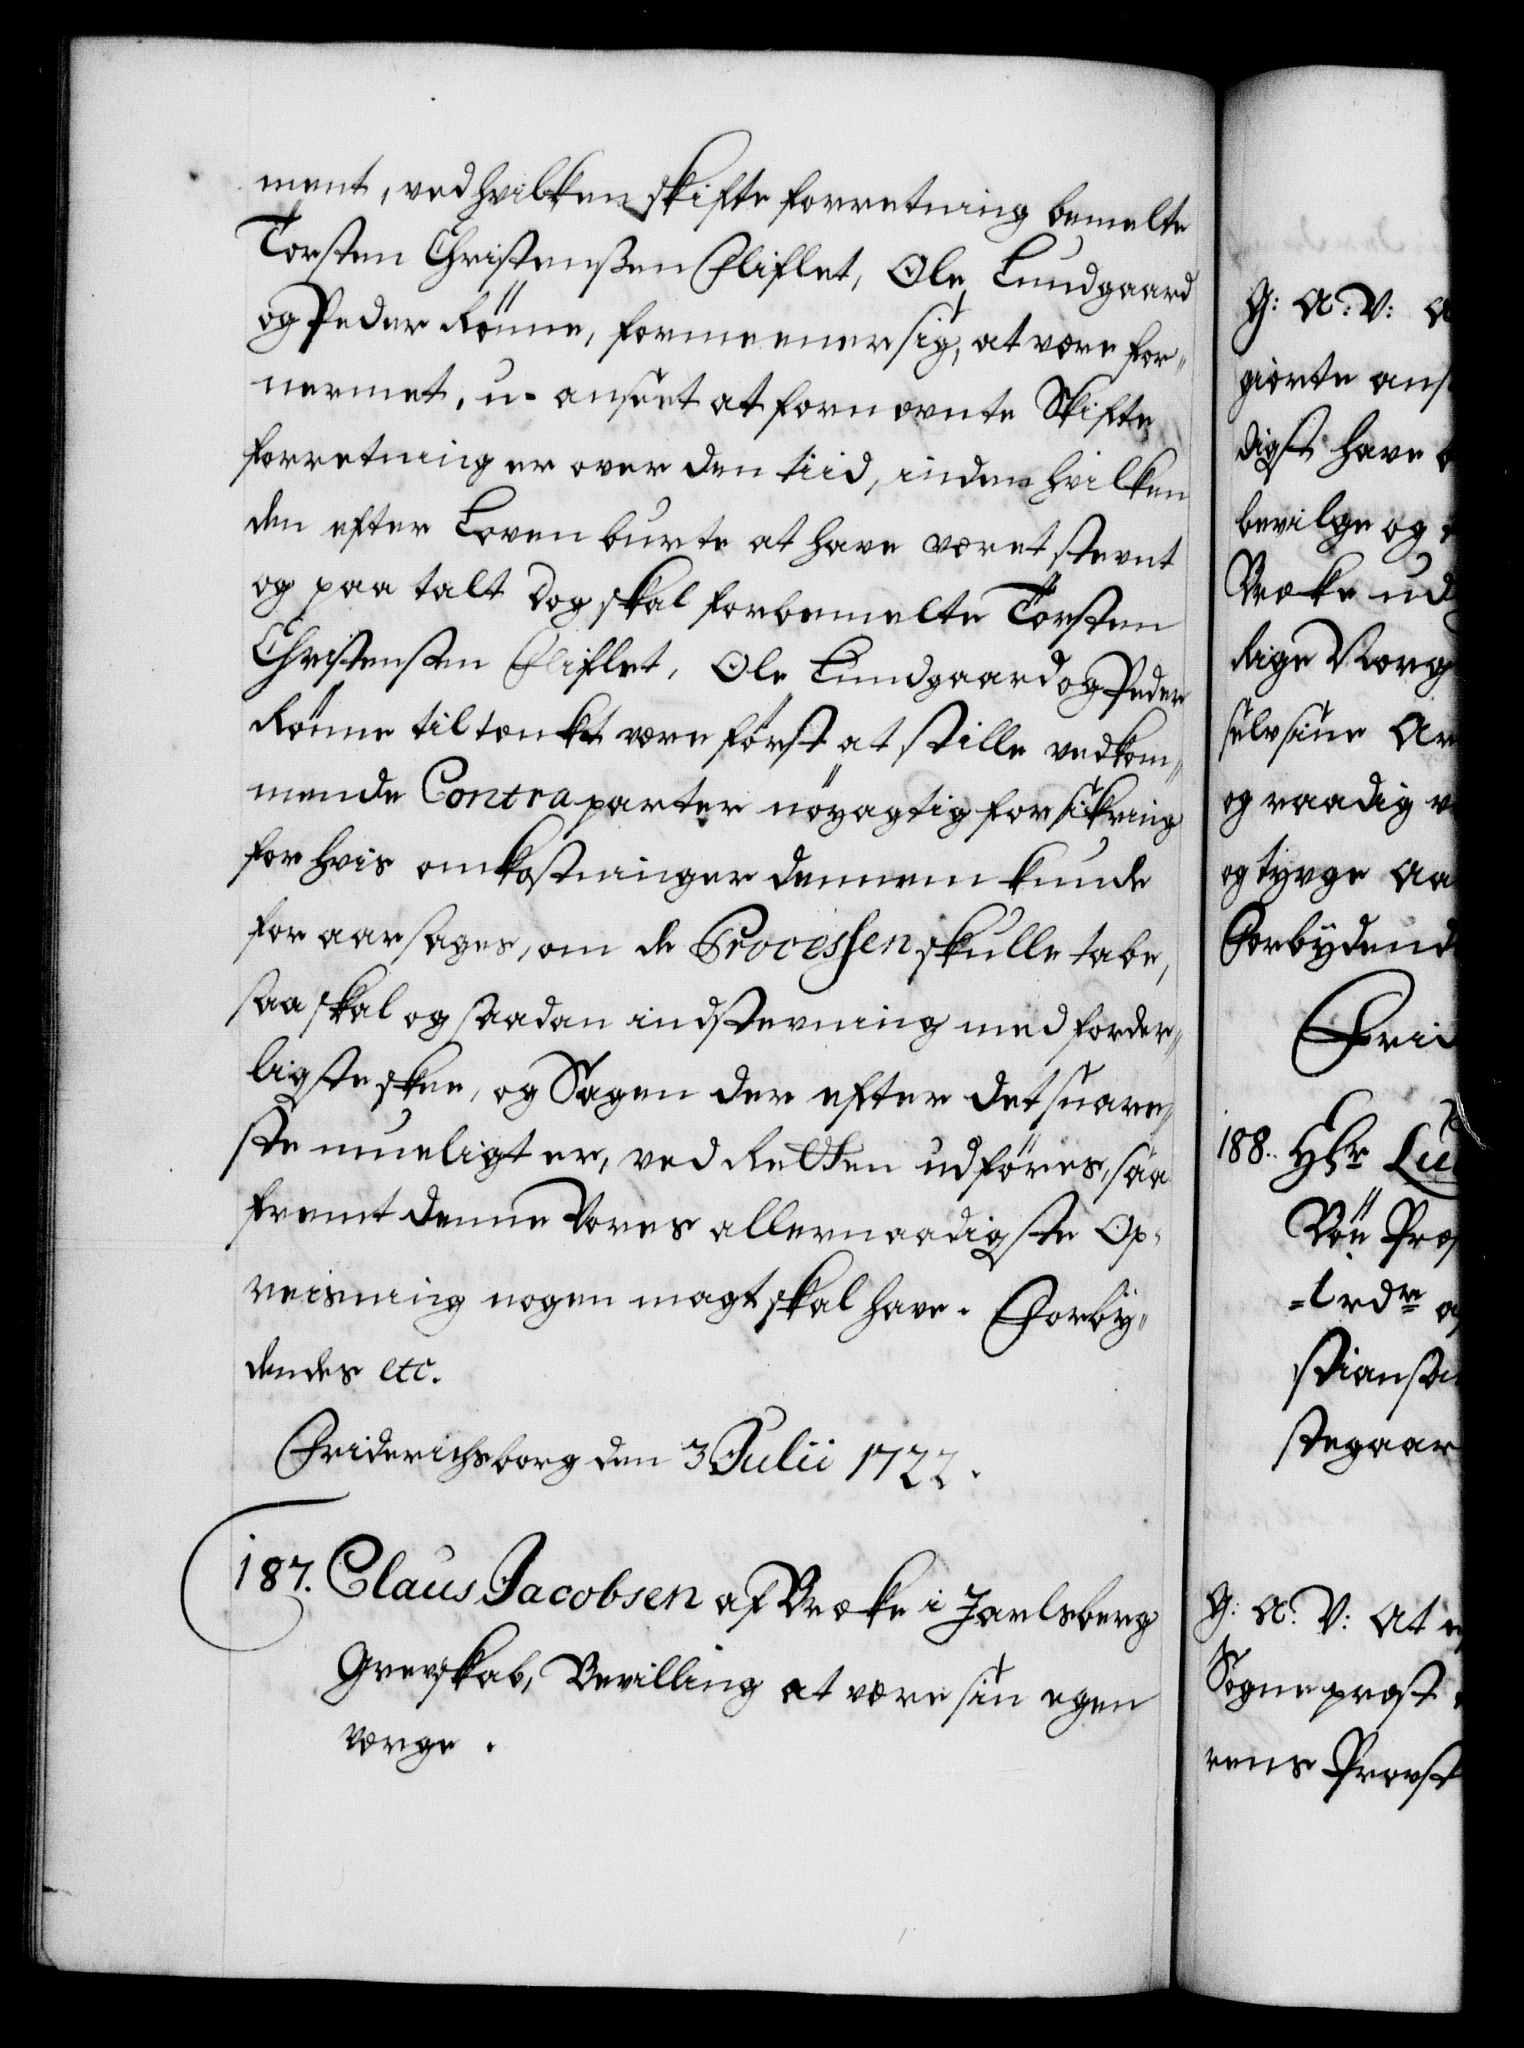 ment, ved hvilken skifte forretning bemelte
Torsten Christenssen Fliflet, Ole Lundgaard
og Peder Rönne, formeener sig, at være for„
nermet, u-anseet at fornevnte Skifte
forretning er over den tiid, inden hvilken
den efter Loven burte at have været stevnt
og paa talt Dog skal forbemelte Torsten
Christenssen Fliflet, Ole Lundgaard og Peder
Rönne tiltenkt være först at stille vedkom„
mende Contraparter nöyagtig forsikring
for hvis omkostninger dennem kunde
foraarsages, om de Processen skulle tabe,
saa skal og saadan indstevning med forder„
ligste skee, og Sagen der efter det snare„
ste mueligt er, ved Retten udföres, saa
fremt denne Vores allernaadigste Op„
reisning nogen magt skal have. Forby„
dendes etc.
Friderichsborg den 3 Julii 1722.
187. Claus Jacobsen af Bræke i Jarlsberg
Grevskab, Bevilling at være sin egen
værge.
G: A: V: A
giörte ans
digst have b
bevilge og
Bræke ud
Rige Norg
selv sine
og raadig v
og tyvge Aa
Forbydend
Frid
188. Hr Lu
Vön Præs
stiansa
stegaar
G: A: V: At
Sogneprest
rens Provst